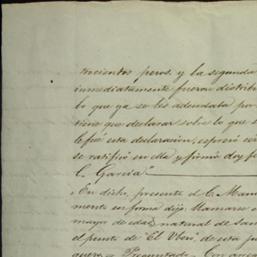 trecientos pesos, y la segunda
inmediatamente fueron distrib
lo que ya se les adeudaba por
tiene que declarar sobre lo que s
le fué esta declaracion, espresó
se ratificó en ella y firmó doy f
C. Garcia
En dicho, presente el C. Mam
mente en forma dijo, llamarse
mayor de edad, natural de San
el punto de "El Vbero" de esta ju
quero = Preguntado = Con